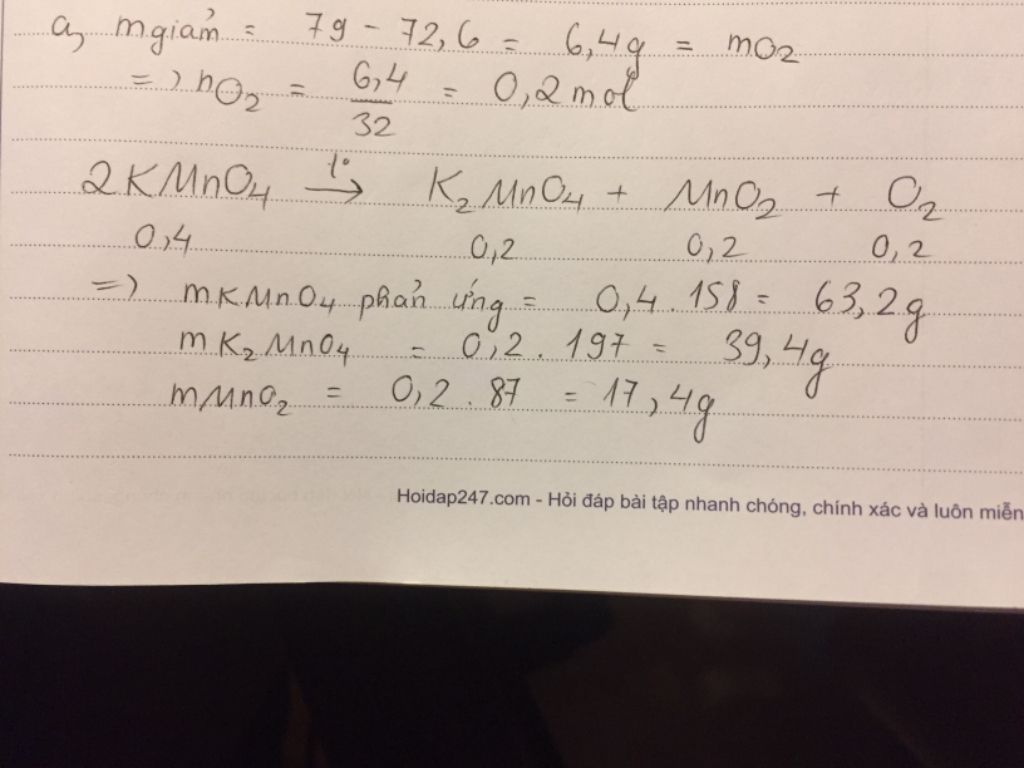 a, mgiảm = 79 - 72,6 = 6,4g = mO2
=> nO2 = 6,4/32 = 0,2 mol
2KMnO4 t°→ K2MnO4 + MnO2 + O2
0,4 0,2 0,2 0,2
=> mKMnO4 phản ứng = 0,4 . 158 = 63,2g
mK2MnO4 = 0,2 . 197 = 39,4g
mMnO2 = 0,2 . 87 = 17,4g
Hoidap247.com - Hỏi đáp bài tập nhanh chóng, chính xác và luôn miễn